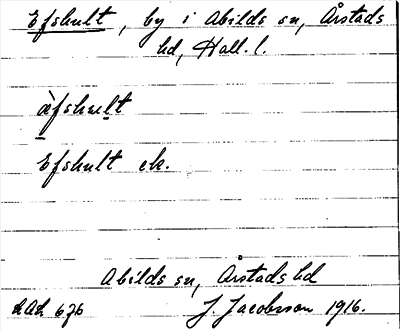 Efskult, by i Abilds sn, Årstads
hd, Hall. l.
àfskult
Efskult ek.
Abilds sn, Årstads hd
J. Jacobsson 1916.